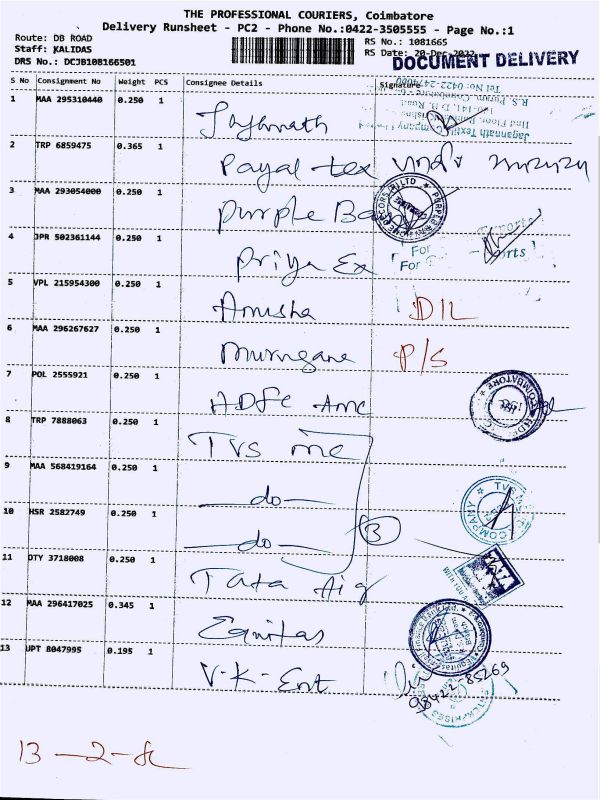 THE PROFESSIONAL COURIERS, Coimbatore
Delivery Runsheet - PC2 - Phone No.:0422-3505555 - Page No.:1
Route: DB ROAD
RS No.: 1081665
Staff: KALIDAS
RS Date: 20-Dec-2022
DRS No.: DCJB108166501
DOCUMENT DELIVERY
S No Consignment No Weight PCS Consignee Details Signature
1 MAA 295310440 0.250 1 Jagannath
Jagannath Textile Company Limited
2 TRP 6859475 0.365 1 Payal tex
3 MAA 293054000 0.250 1 Purple
4 JPR 502361144 0.250 1 Priya Ex
For
For
5 VPL 215954300 0.250 1 Anusha D/L
6 MAA 296267627 0.250 1 Murugane P/S
7 POL 2555921 0.250 1 HDFC Amc
COIMBATORE
8 TRP 7888063 0.250 1 TVS mc
9 MAA 568419164 0.250 1 —do—
COMPANY
10 HSR 2582749 0.250 1 —do— 3
11 DTY 3718008 0.250 1 Tata Aig
12 MAA 296417025 0.345 1 Equitas
13 UPT 8047995 0.195 1 V-K-Ent
98422-85269
13 — 2 -